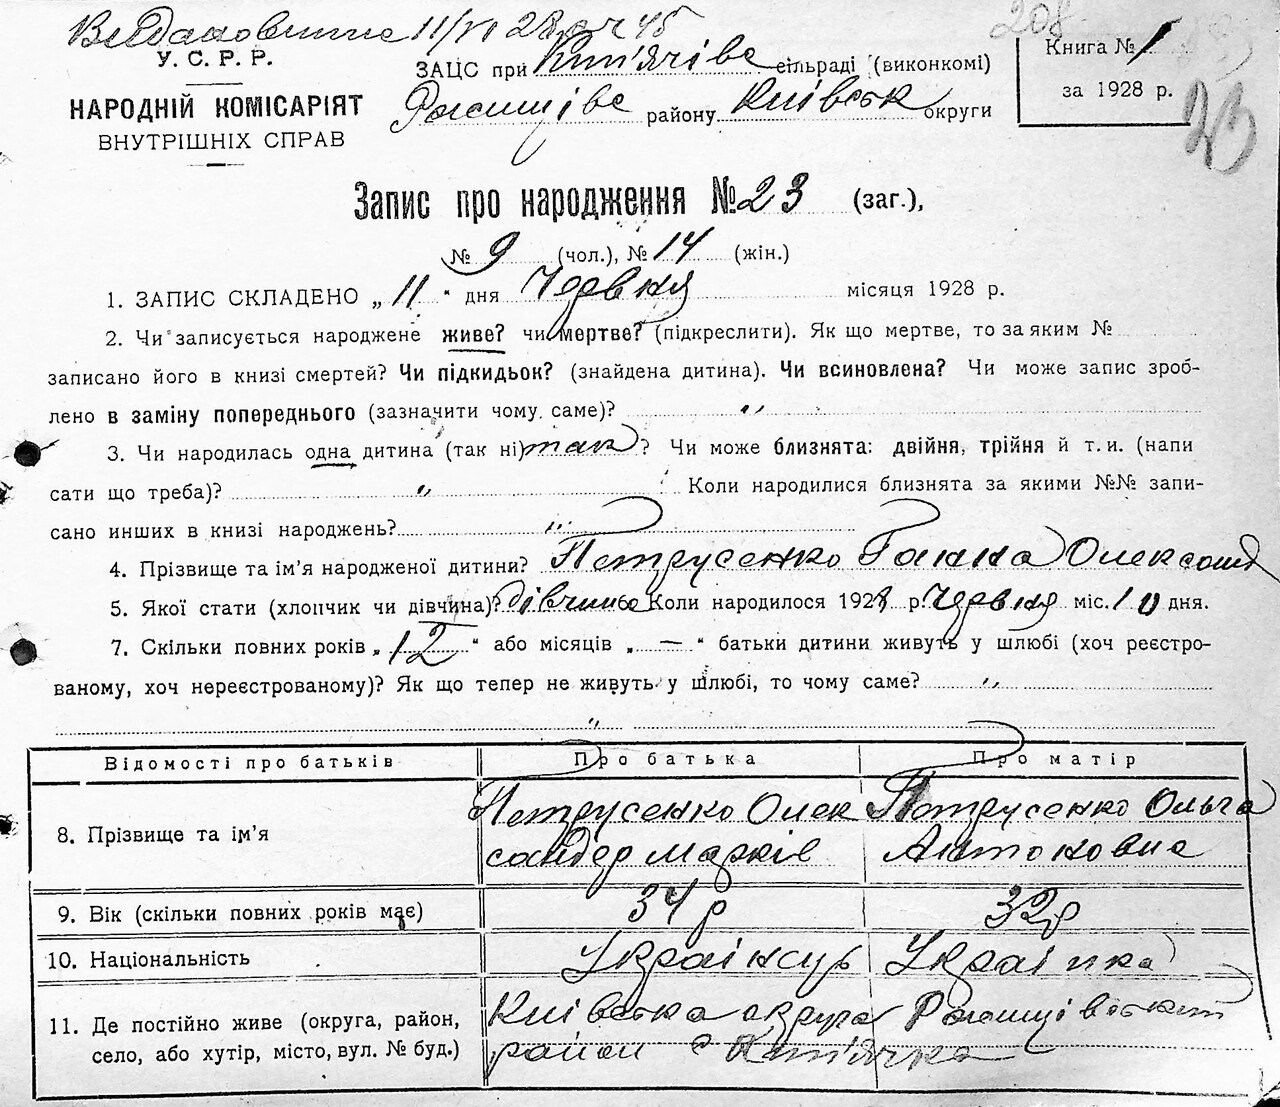 11/VI 28 р ч 45
208
У. С. Р. Р.
НАРОДНІЙ КОМІСАРІЯТ
ВНУТРІШНІХ СПРАВ
ЗАЦС при сільраді (виконкомі)
району Київськ округи
Книга № 1
за 1928 р.
23
Запис про народження № 23 (заг.),
№ 9 (чол.), № 14 (жін.)
1. ЗАПИС СКЛАДЕНО „ 11 “ дня Червня місяця 1928 р.
2. Чи записується народжене живе? чи мертве? (підкреслити). Як що мертве, то за яким №
записано його в книзі смертей? Чи підкидьок? (знайдена дитина). Чи всиновлена? Чи може запис зроб-
лено в заміну попереднього (зазначити чому саме)? „
3. Чи народилась одна дитина (так ні) так ? Чи може близнята: двійня, трійня й т. и. (напи
сати що треба)? „ Коли народилися близнята за якими №№ запи-
сано инших в книзі народжень? „
4. Прізвище та ім'я народженої дитини? Петрусенко Ганна Олександ
5. Якої стати (хлопчик чи дівчина)? дівчина Коли народилося 1928 р. Червня міс. 10 дня.
7. Скільки повних років „ 12 “ або місяців „ — “ батьки дитини живуть у шлюбі (хоч реєстро-
ваному, хоч нереєстрованому)? Як що тепер не живуть у шлюбі, то чому саме? „
„
Відомості про батьків Про батька Про матір
8. Прізвище та ім'я Петрусенко Олек Петрусенко Ольга
сандер Марків Антоновна
9. Вік (скільки повних років має) 34 р 32 р
10. Національність Українець Українка
11. Де постійно живе (округа, район, Київська округа
село, або хутір, місто, вул. № буд.) район с